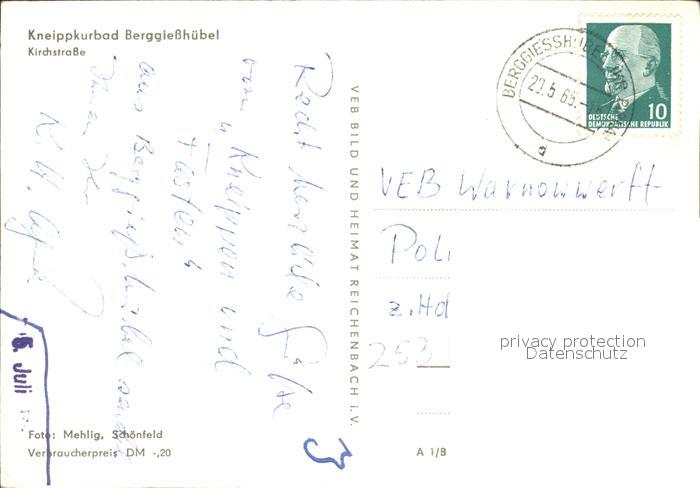 Kneippkurbad Berggießhübel
Kirchstraße
Recht herzliche Grüße
vom „Kneippen und
Fasten“
aus Berggießhübel sendet
Ihnen Ihr
K. H.
5. Juli
Foto: Mehlig, Schönfeld
Verbraucherpreis DM -,20
VEB BILD UND HEIMAT REICHENBACH i.V.
A 1/B
BERGGIESSHÜBEL
20.5.65.
a
10
DEUTSCHE
DEMOKRATISCHE REPUBLIK
VEB Warnowwerft
Poli
z.Hd
253
3
privacy protection
Datenschutz